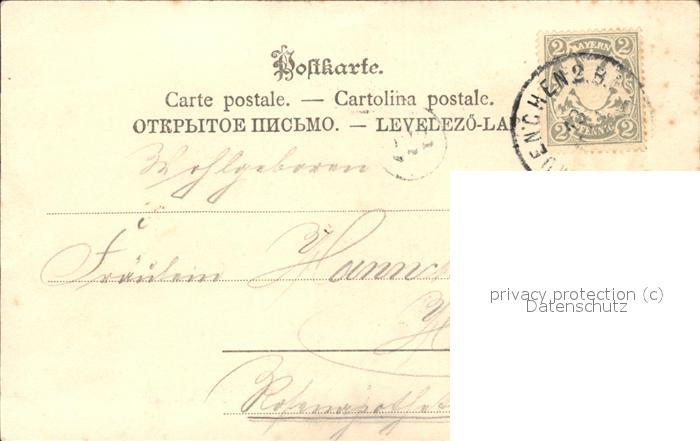 Postkarte.
Carte postale. — Cartolina postale.
ОТКРЫТОЕ ПИСЬМО. — LEVELEZŐ-LA
2 BAYERN 2
2 PFENNIG 2
ENCHEN 2. B.
Wohlgeboren
Fräulein Hannch
H
Rosenapothek
privacy protection (c)
Datenschutz